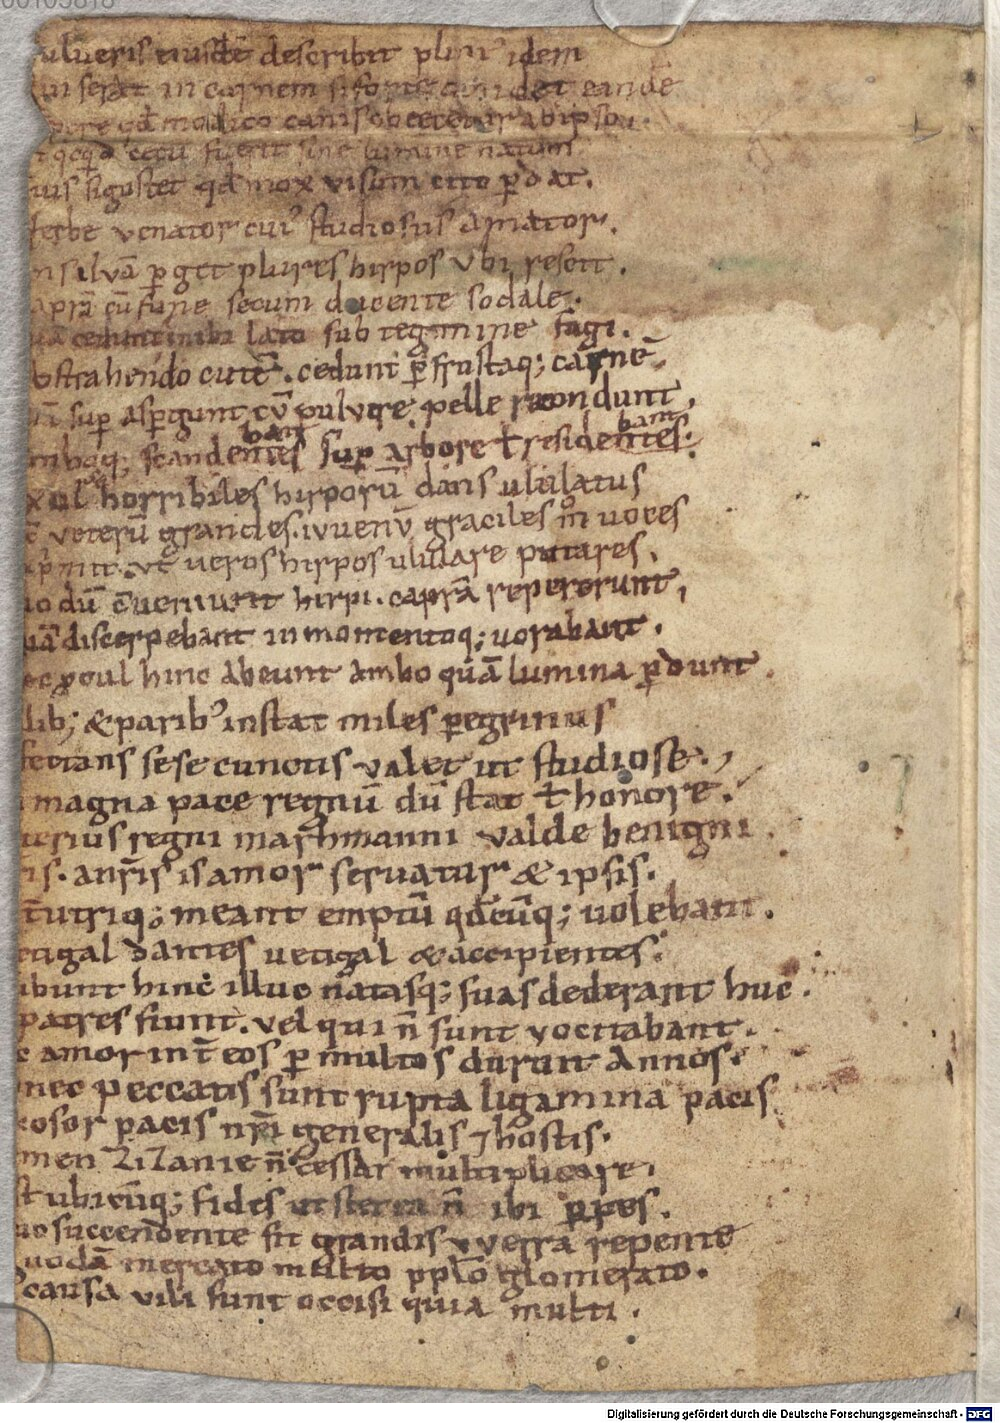 00105818
ulueris eiusdē describit plurꝰ idem
ui serat in carnem si forte
pore qđ modico canis
qcqd cecū fuerit sine lumine natum
uis si gustet qđ mox visum cito ꝑdat.
ferbe venator cuiꝰ studiosus amator.
n siluā ꝑget plures hirpos ubi rescit.
aprā cū fune secum ducente sodale.
uā cedunt inibi lato sub tegmine fagi.
bstrahendo cutē. cedunt ꝑ frustaq; carnē.
uā suꝑ asꝑgunt cū puluere pelle recondunt,
mboq; scandentes suꝑ arbore & residentes.
bant bant
xul horribiles hirporū dans ululatus
c̄ veterū grandes. iuuenū graciles m̊ uoces
xp̄mit. ut ueros hirpos ululare putares.
uo dū c̄ueniunt hirpi. caprā repererunt,
uā discerpebant in momentoq; uorabant.
ec ꝓcul hinc abeunt ambo quā lumina ꝑdunt.
lib; & paribꝰ instat miles peregrinus
fectans sese cunctis valet ut studiose.
magna pace regnū dū stat & honore.
terius regni marhmanni valde benigni.
is. a nr̄is is amor seruatur & ipsis.
t̄ utriq; meant emptū qđcūq; uolebant.
ctigal dantes uetigal & accipientes.
ibunt hinc illuc natasq; suas dederant huc.
patres fiunt. vel qui n̄ sunt vocitabant.
c amor int̄ eos ꝑ multos durat annos.
nec peccatis sunt rupta ligamina pacis
osor pacis nr̄i generalis ⁊ hostis.
men zizanie n̄ cessat multiplicare.
st ubicūq; fides ut stet n̄ ibi ꝑpes.
uo succendente fit grandis vverra repente
uodā mercato multo pplo glomerato.
causa vili sunt occisi quia multi.
Digitalisierung gefördert durch die Deutsche Forschungsgemeinschaft - DFG